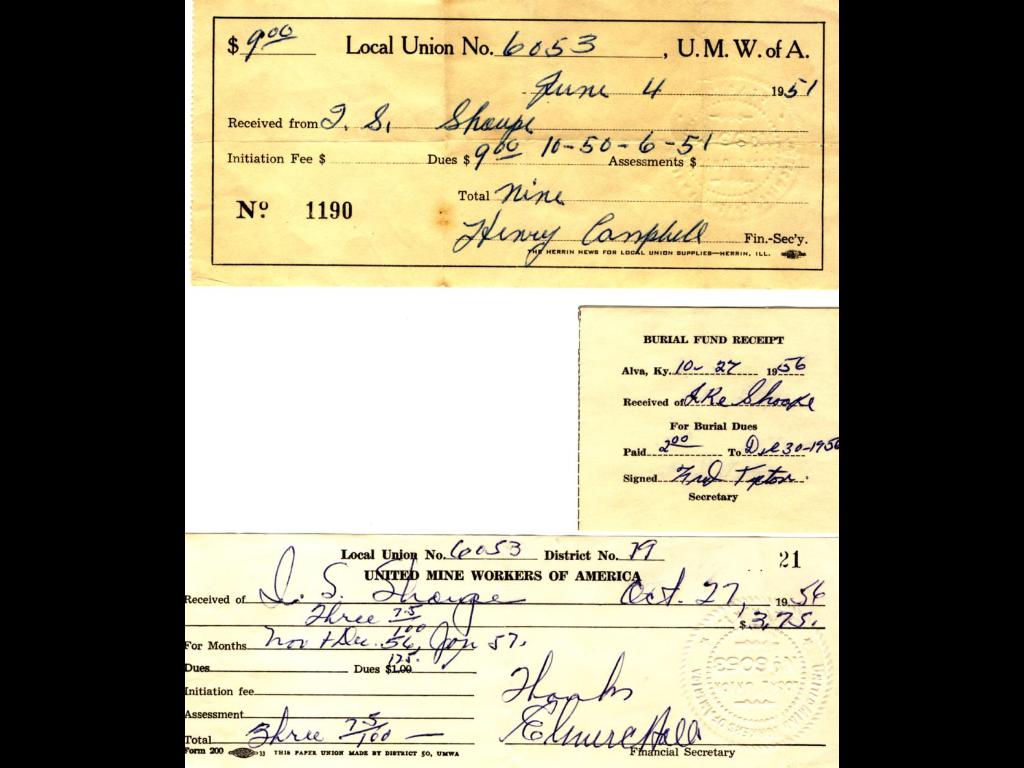 $ 9.00 Local Union No. 6053, U.M.W. of A.
June 4 1951
Received from I. S. Shoupe
Initiation Fee $ Dues $ 9.00 10-50-6-51 Assessments $
Total Nine
Nº 1190
Henry Campbell Fin.-Sec'y.
THE HERRIN NEWS FOR LOCAL UNION SUPPLIES—HERRIN, ILL.
BURIAL FUND RECEIPT
Alva, Ky. 10-27 1956
Received of Ike Shoupe
For Burial Dues
Paid 2.00 To Dec 30-1956
Signed Fred Tipton
Secretary
Local Union No. 6053 District No. 19 21
UNITED MINE WORKERS OF AMERICA
Received of I. S. Shoupe Oct. 27, 1956
Three 75/100 $3.75.
For Months Nov + Dec. 56, Jan 57.
Dues Dues $1.00 1.25.
Initiation fee
Assessment Thanks
Total Three 75/100 — Elmure Hall
Form 200 33 THIS PAPER UNION MADE BY DISTRICT 50, UMWA Financial Secretary